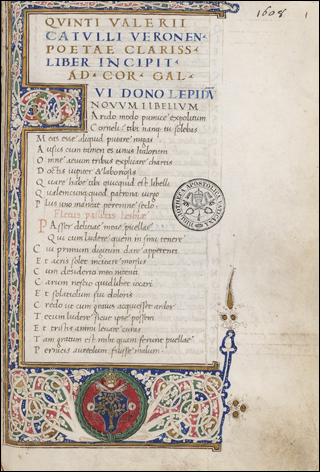 1608 1
QVINTI VALERII
CATVLLI VERONEN·
POETAE CLARISS·
LIBER INCIPIT·
AD · COR · GAL ·
VI DONO LEPIDV̄
NOVVM LIBELLVM
Arido modo pumice expolitum
Corneli tibi nanq; tu solebas
Meas esse aliquid putare nugas
Ausus cum unus es Italorum
Omne aeuum tribus explicare chartis
Doctis iupiter & laboriosis
Quare habe tibi quicquid est libelli
Qualemcunq; quod patrona uirgo
Plus uno maneat perenne seclo
Fletus passeris lesbiae
Passer deliciae meae puellae
Qui cum ludere quem in sinu tenere
Cui primum digitum dare appetenti
Et acris solet incitare morsus
Cum desiderio meo nitenti
Carum nescio quid libet iocari
Et solatiolum sui doloris
Credo ut cum grauis acquiescet ardor
Tecum ludere sicut ipsa possem
Et tristis animi leuare curas
Tam gratum est mihi quam ferunt puellae
Pernici aureolum fuisse malum
BIBLIOTHECA APOSTOLICA VATICANA